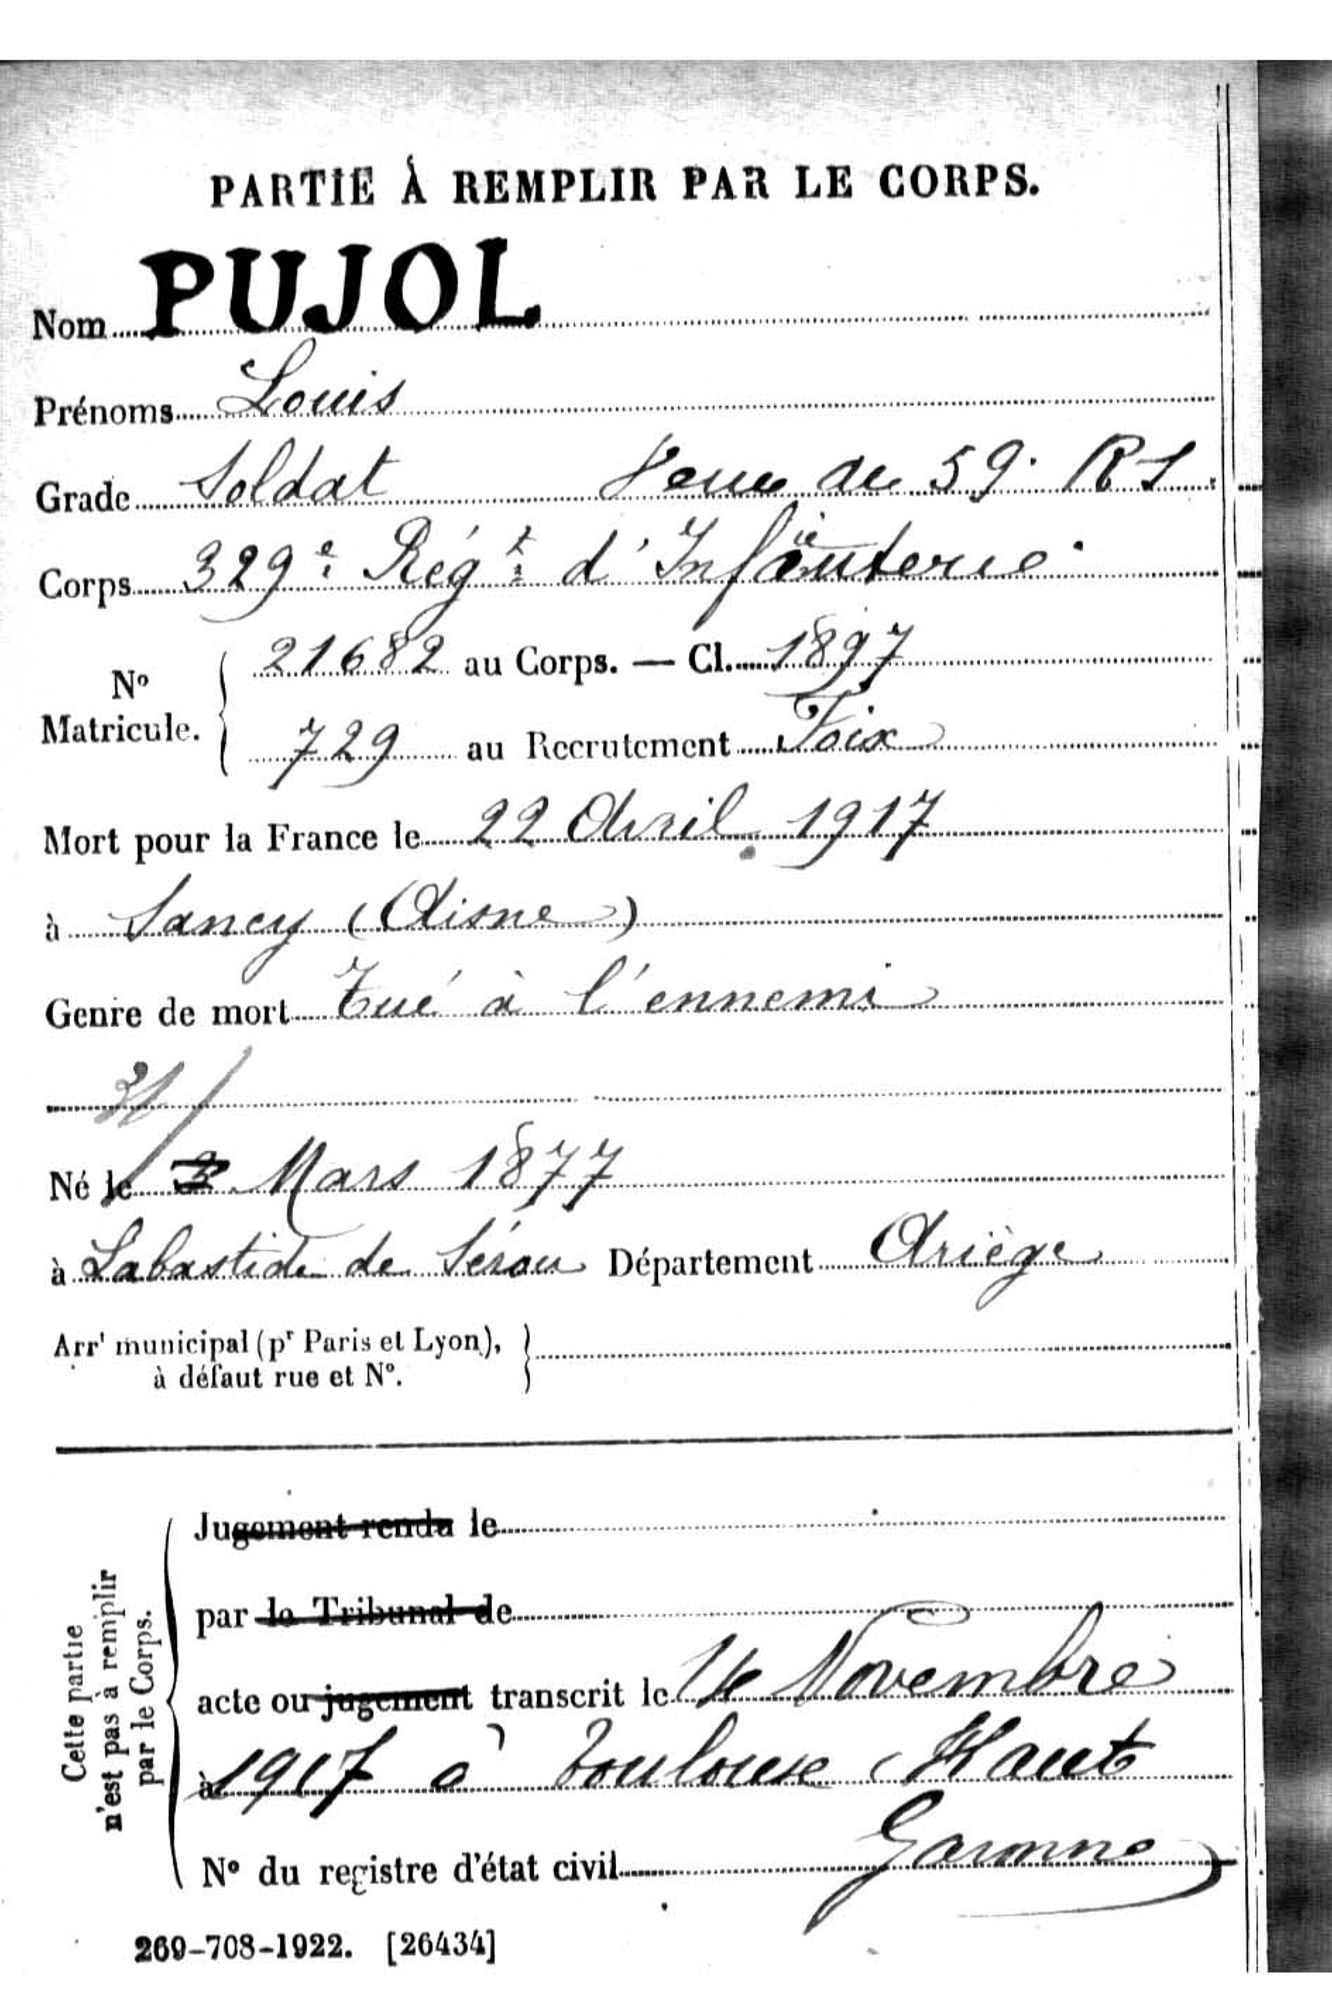 PARTIE À REMPLIR PAR LE CORPS.
Nom PUJOL
Prénoms Louis
Grade Soldat Venu du 59. R I.
Corps 329e Régt d'Infanterie
No Matricule. 21682 au Corps. — Cl. 1897
729 au Recrutement Foix
Mort pour la France le 22 Avril 1917
à Sancy (Aisne)
Genre de mort tué à l'ennemi
31/
Né le 3 Mars 1877
à Labastide de Sérou Département Ariège
Arrt municipal (pr Paris et Lyon),
à défaut rue et No.
Cette partie
n'est pas à remplir
par le Corps.
Jugement rendu le
par le Tribunal de
acte ou jugement transcrit le 14 Novembre
à 1917 à Toulouse (Haut
No du registre d'état civil Garonne)
269-708-1922. [26434]